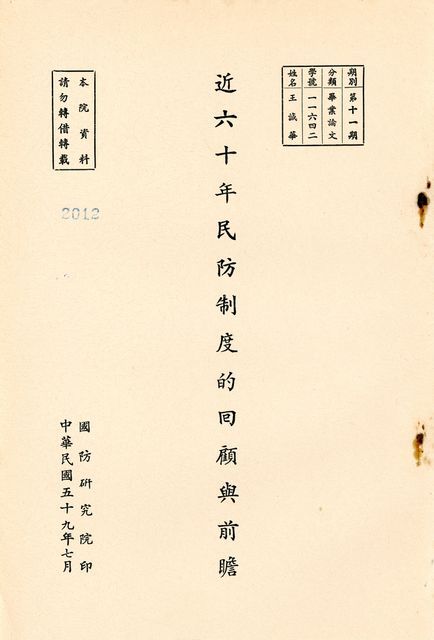 期別 第十一期
分類 畢業論文
學號 一一六四二
姓名 王誠華
近六十年民防制度的回顧與前瞻
本院資料
請勿轉借轉載
2012
國防研究院印
中華民國五十九年七月